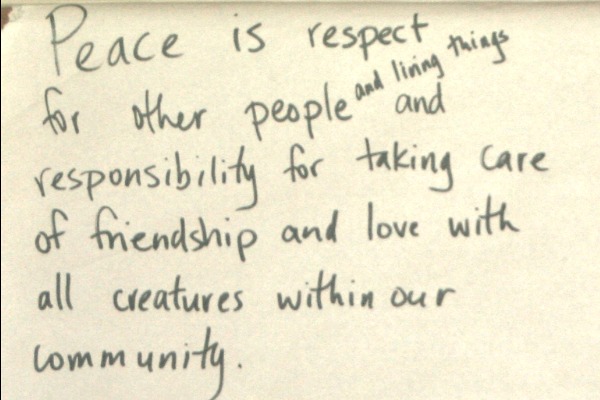 Peace is respect
for other people and living things and
responsibility for taking care
of friendship and love with
all creatures within our
community.